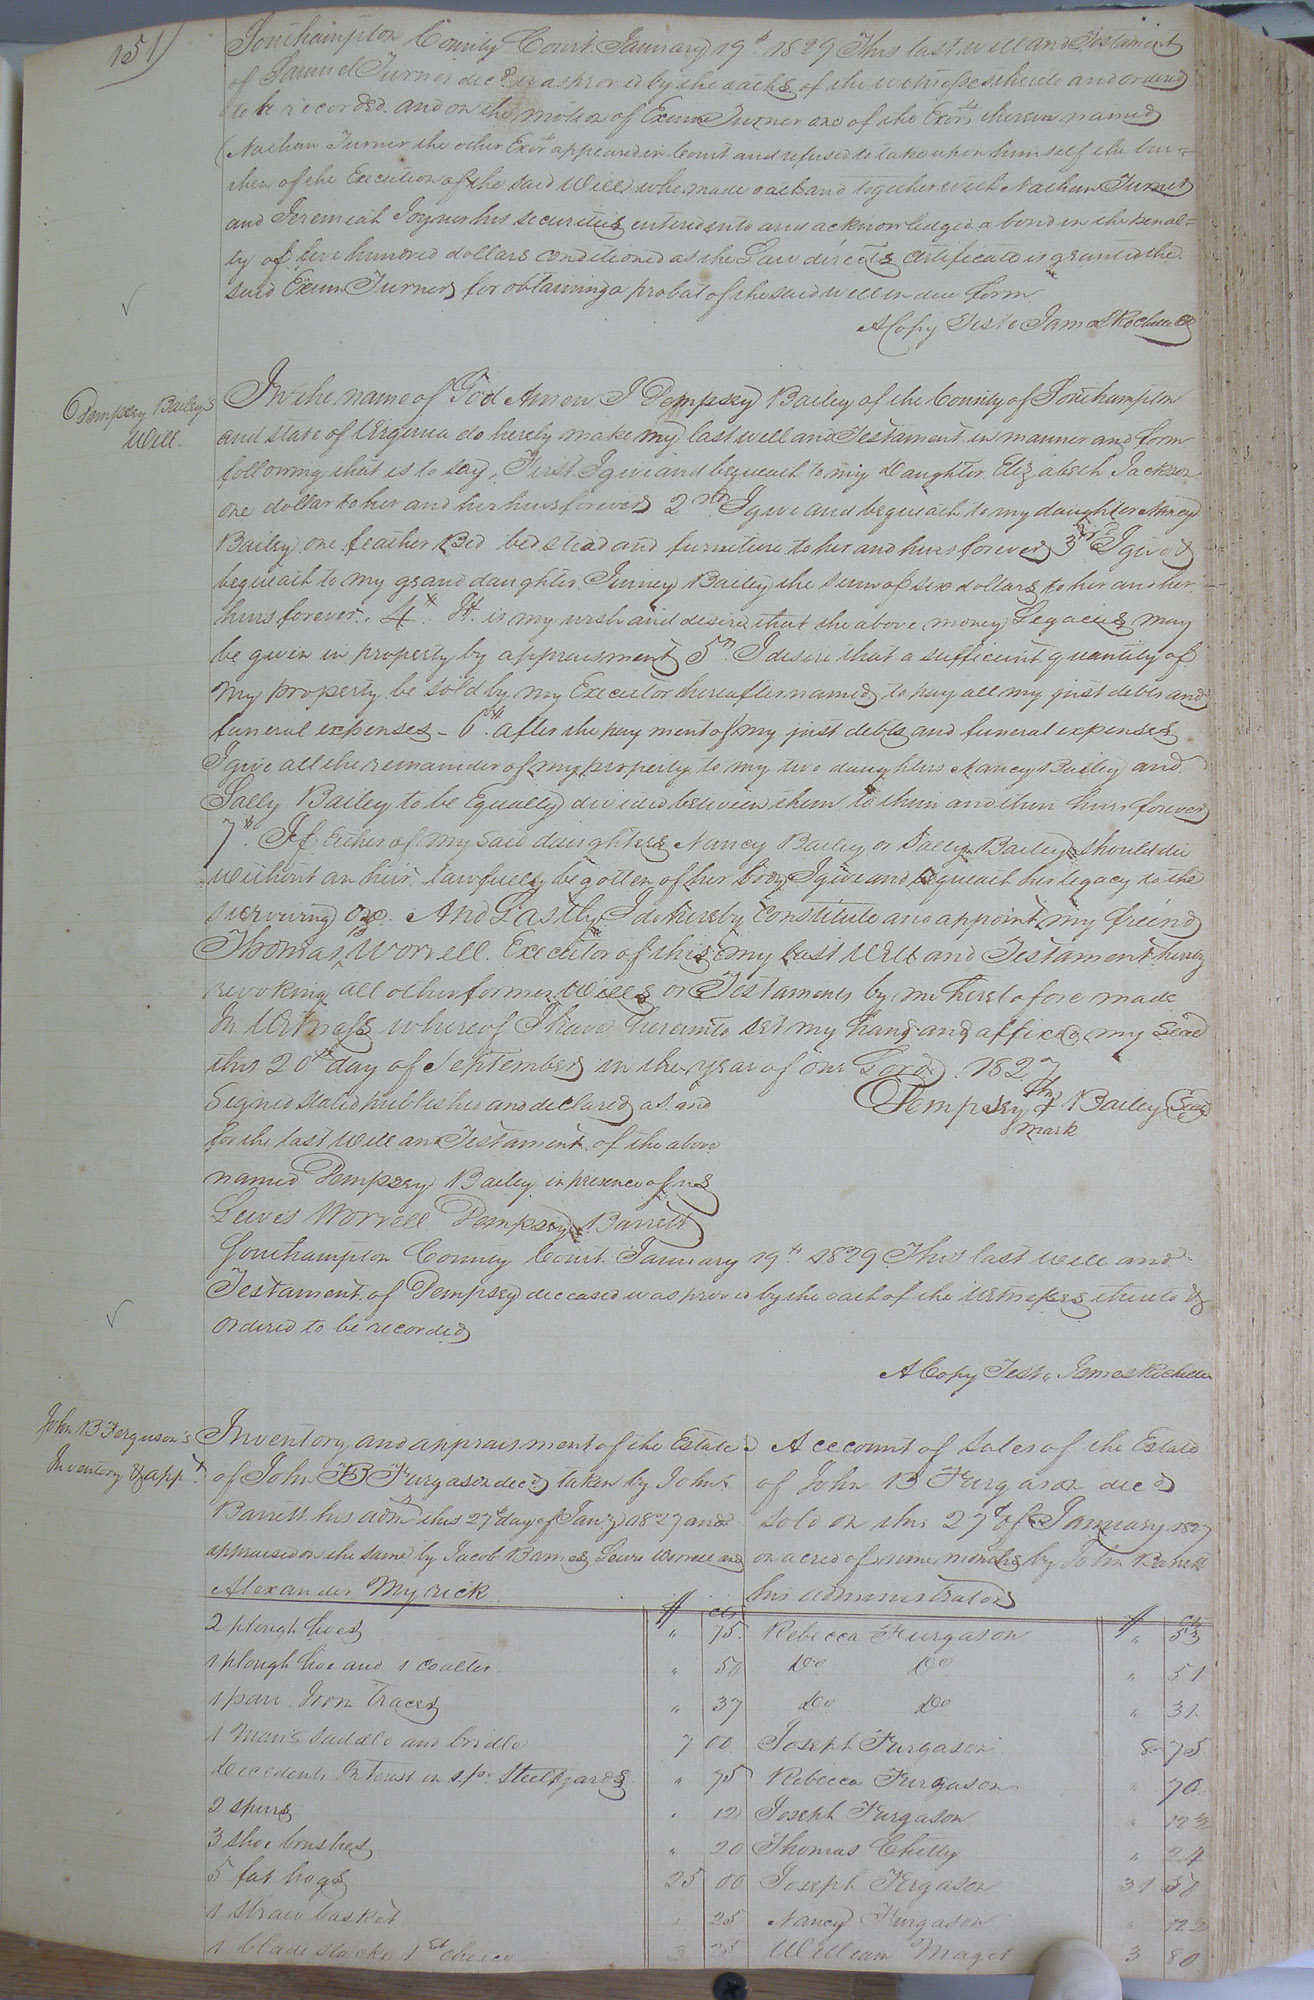 151
Southampton County Court January 19th 1829 This last will and Testament
of Samuel Turner decd. was proved by the oaths of the witnesses thereto and ordered
to be recorded. and on the motion of Exum Turner one of the Exors therein named
(Nathan Turner the other Exor appeared in Court and refused to take upon himself the bur=
then of the Execution of the said Will) who made oath and together with Nathan Turner
and Jeremiah Joyner his securities entered into and acknowledged a bond in the penal=
ty of five hundred dollars conditioned as the Law directs certificate is granted the
said Exum Turner for obtaining a probat of the said will in due form
A Copy Teste James Rochelle
Dempsey Bailey's
Will.
In the name of God Amen I Dempsey Bailey of the County of Southampton
and state of Virginia do hereby make my last will and Testament in manner and form
following that is to say, First I give and bequeath to my Daughter Elizabeth Jackson
one dollar to her and her heirs forever 2nd I give and bequeath to my daughter Nancy
Bailey one feather Bed bedstead and furniture to her and heirs forever 3rd I give &
bequeath to my grand daughter Bailey the sum of six dollars to her and her
heirs forever. 4th. It is my wish and desire that the above money Legacies may
be given in property by appraisment 5th I desire that a sufficient quantity of
my property be sold by my Executor hereafter named to pay all my just debts and
funeral expenses - 6th. after the payment of my just debts and funeral expenses
I give all the remainder of my property to my two daughters Nancy Bailey and
Sally Bailey to be Equally divided between them to them and their heirs forever
7th. If Either of my said daughters Nancy Bailey or Sally Bailey should die
without an heir lawfully begotten of her body I give and bequeath her legacy to the
surviving one. And Lastly I do hereby constitute and appoint my freind
Thomas B Worrell. Executor of this my Last Will and Testament hereby
revoking all other former Wills or Testaments by me heretofore made
In Witness whereof I have hereunto set my hand and affixed my Seal
this 20th day of September in the year of our Lord 1827
Signed sealed published and declared as and
Dempsey his + mark Bailey Seal
for the last Will and Testament of the above
named Dempsey Bailey in presence of us
Lewis Worrell Dempsey Barrett
Southampton County Court January 19th 1829 This last will and
Testament of Dempsey deceased was proved by the oath of the Witnesses thereto &
ordered to be recorded
A Copy Teste James Rochelle
John B Ferguson's
Inventory & appt
Inventory and appraisment of the Estate
of John B Furgason decd taken by John
Barrett his admr this 27th day of Jany 1827 and
appraised on the same by Jacob Barnes Lewis Worrell and
Alexander Myrick
Account of Sales of the Estate
of John B Furgason decd
sold on this 27th of January 1827
on a cred of nine months by John Barrett
his administrator
$ cts $ cts
2 plough hoes " 75. Rebecca Furgason " 53
1 plough hoe and 1 coulter " 50 Do Do " 51
1 pair Iron Traces " 37 Do Do " 31
1 Man's saddle and bridle 7 00 Joseph Furgason 8 75
Decedents Interest in 1 pr Steelyards " 75 Rebecca Furgason " 70
2 spurs " 12 Joseph Furgason " 12½
3 shoe brushes " 20 Thomas Chitty " 24
5 fat hogs 25 00 Joseph Fergason 31 50
1 straw basket " 25 Nancy Furgason " 12½
1 blade stack 1st choice 3 25 William Maget 3 80